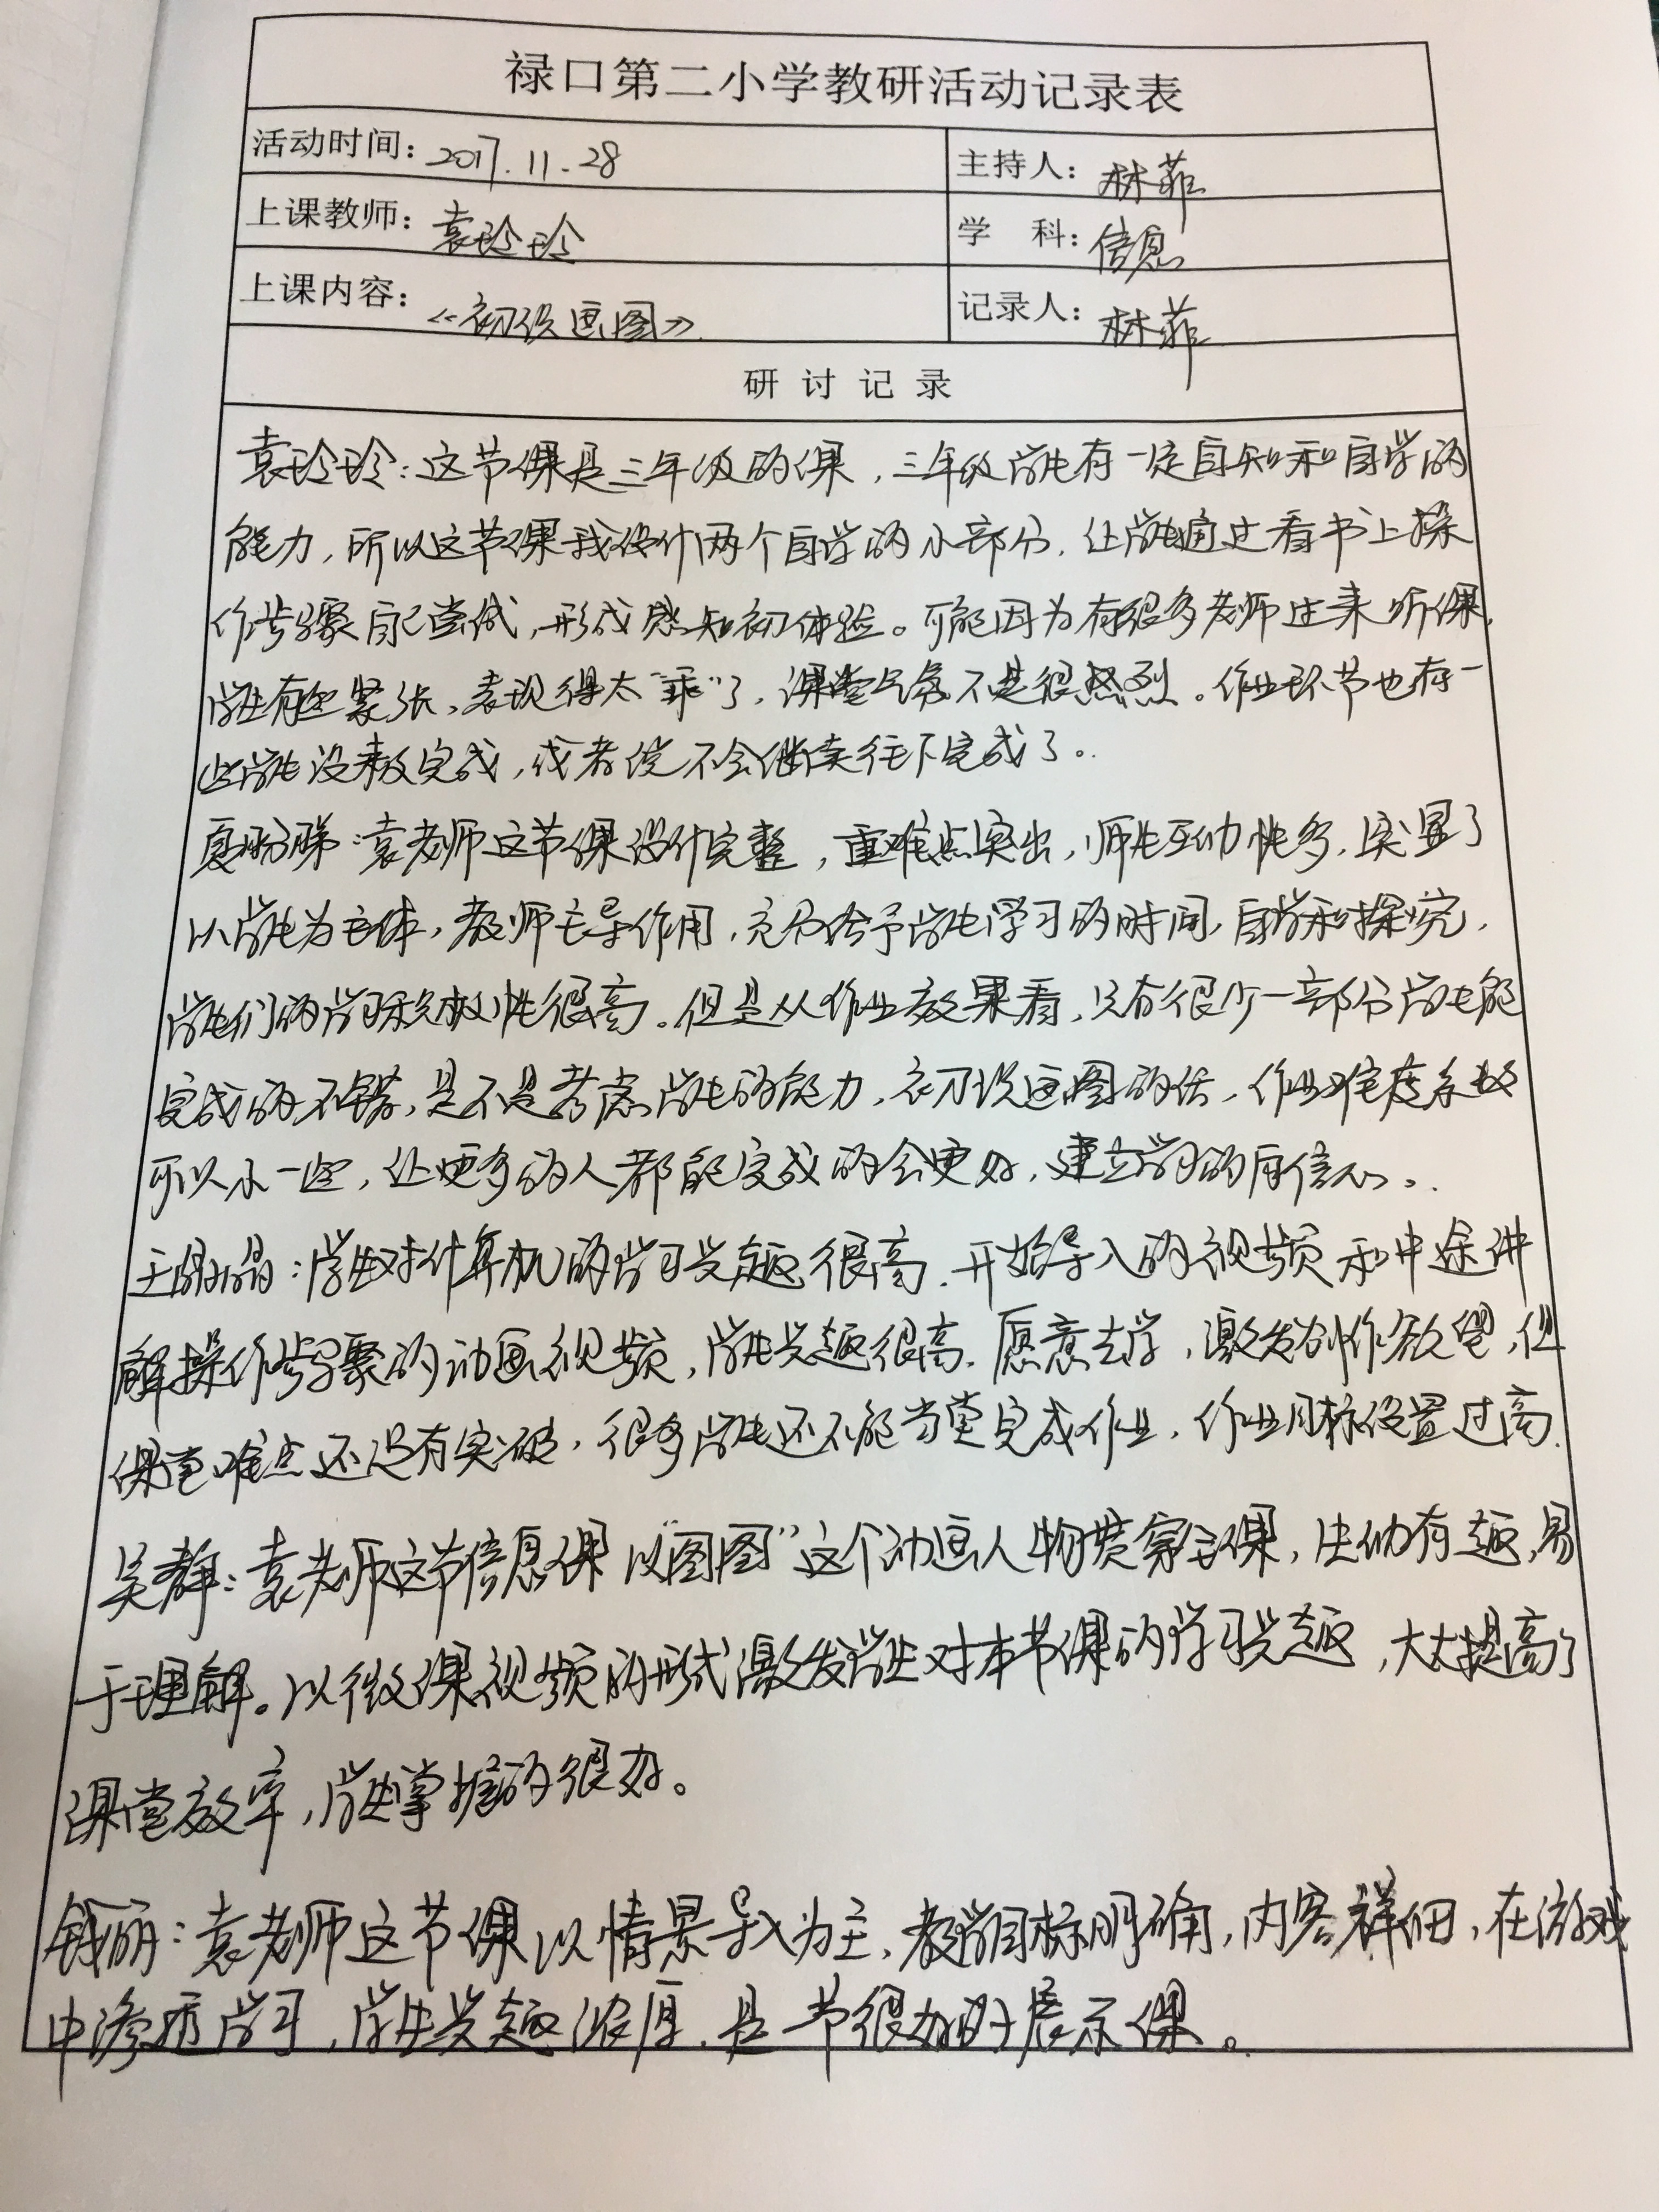 禄口第二小学教研活动记录表
活动时间：2017.11.28
主持人：林菲
上课教师：袁玲玲
学 科：信息
上课内容：《初识画图》
记录人：林菲
研 讨 记 录
袁玲玲：这节课是三年级的课，三年级学生有一定自知和自学的
能力，所以这节课我设计两个自学的小部分，让学生通过看书上操
作步骤自己尝试，形成感知初体验。可能因为有很多老师过来听课，
学生有些紧张，表现得太“乖”了，课堂气氛不是很热烈。作业环节也有一
些学生没来及完成，或者说不会继续往下完成了。
袁老师这节课设计完整，重难点突出，师生互动性多，突显了
以学生为主体，教师主导作用，充分给予学生学习的时间，自学和探究，
学生们的学习积极性很高。但是从作业效果看，只有很少一部分学生能
完成的不错，是不是考虑学生的能力，初识画图的话，作业难度系数
可以小一些，让更多的人都能完成的会更好，建立学习的自信心。
王晶晶：学生对计算机的学习兴趣很高，开始导入的视频和中途讲
解操作步骤的动画视频，学生兴趣很高，愿意去学，激发创作欲望，但
课堂难点还没有突破，很多学生还不能当堂完成作业，作业目标设置过高。
吴静：袁老师这节信息课以“图图”这个动画人物贯穿主课，生动有趣，易
于理解。以微课视频的形式激发学生对本节课的学习兴趣，大大提高了
课堂效率，学生掌握的很好。
钱丽：袁老师这节课以情景导入为主，教学目标明确，内容详细，在游戏
中渗透学习，学生兴趣浓厚，是一节很好的展示课。